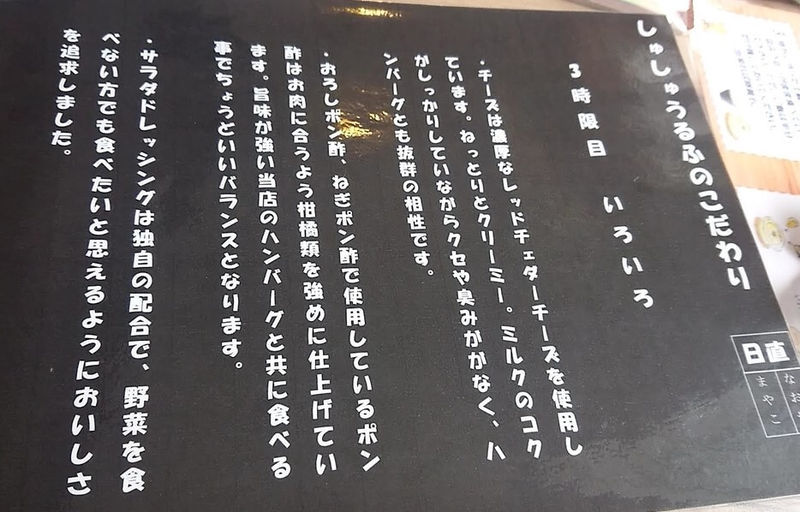 しゅしゅうるふのこだわり
3時限目　いろいろ
・チーズは濃厚なレッドチェダーチーズを使用し
ています。ねっとりとクリーミー。ミルクのコク
がしっかりしていながらクセや臭みがなく、ハ
ンバーグとも抜群の相性です。
・おろしポン酢、ねぎポン酢で使用しているポン
酢はお肉に合うよう柑橘類を強めに仕上げてい
ます。旨味が強い当店のハンバーグと共に食べる
事でちょうどいいバランスとなります。
・サラダドレッシングは独自の配合で、野菜を食
べない方でも食べたいと思えるようにおいしさ
を追求しました。
日直
なお
まやこ